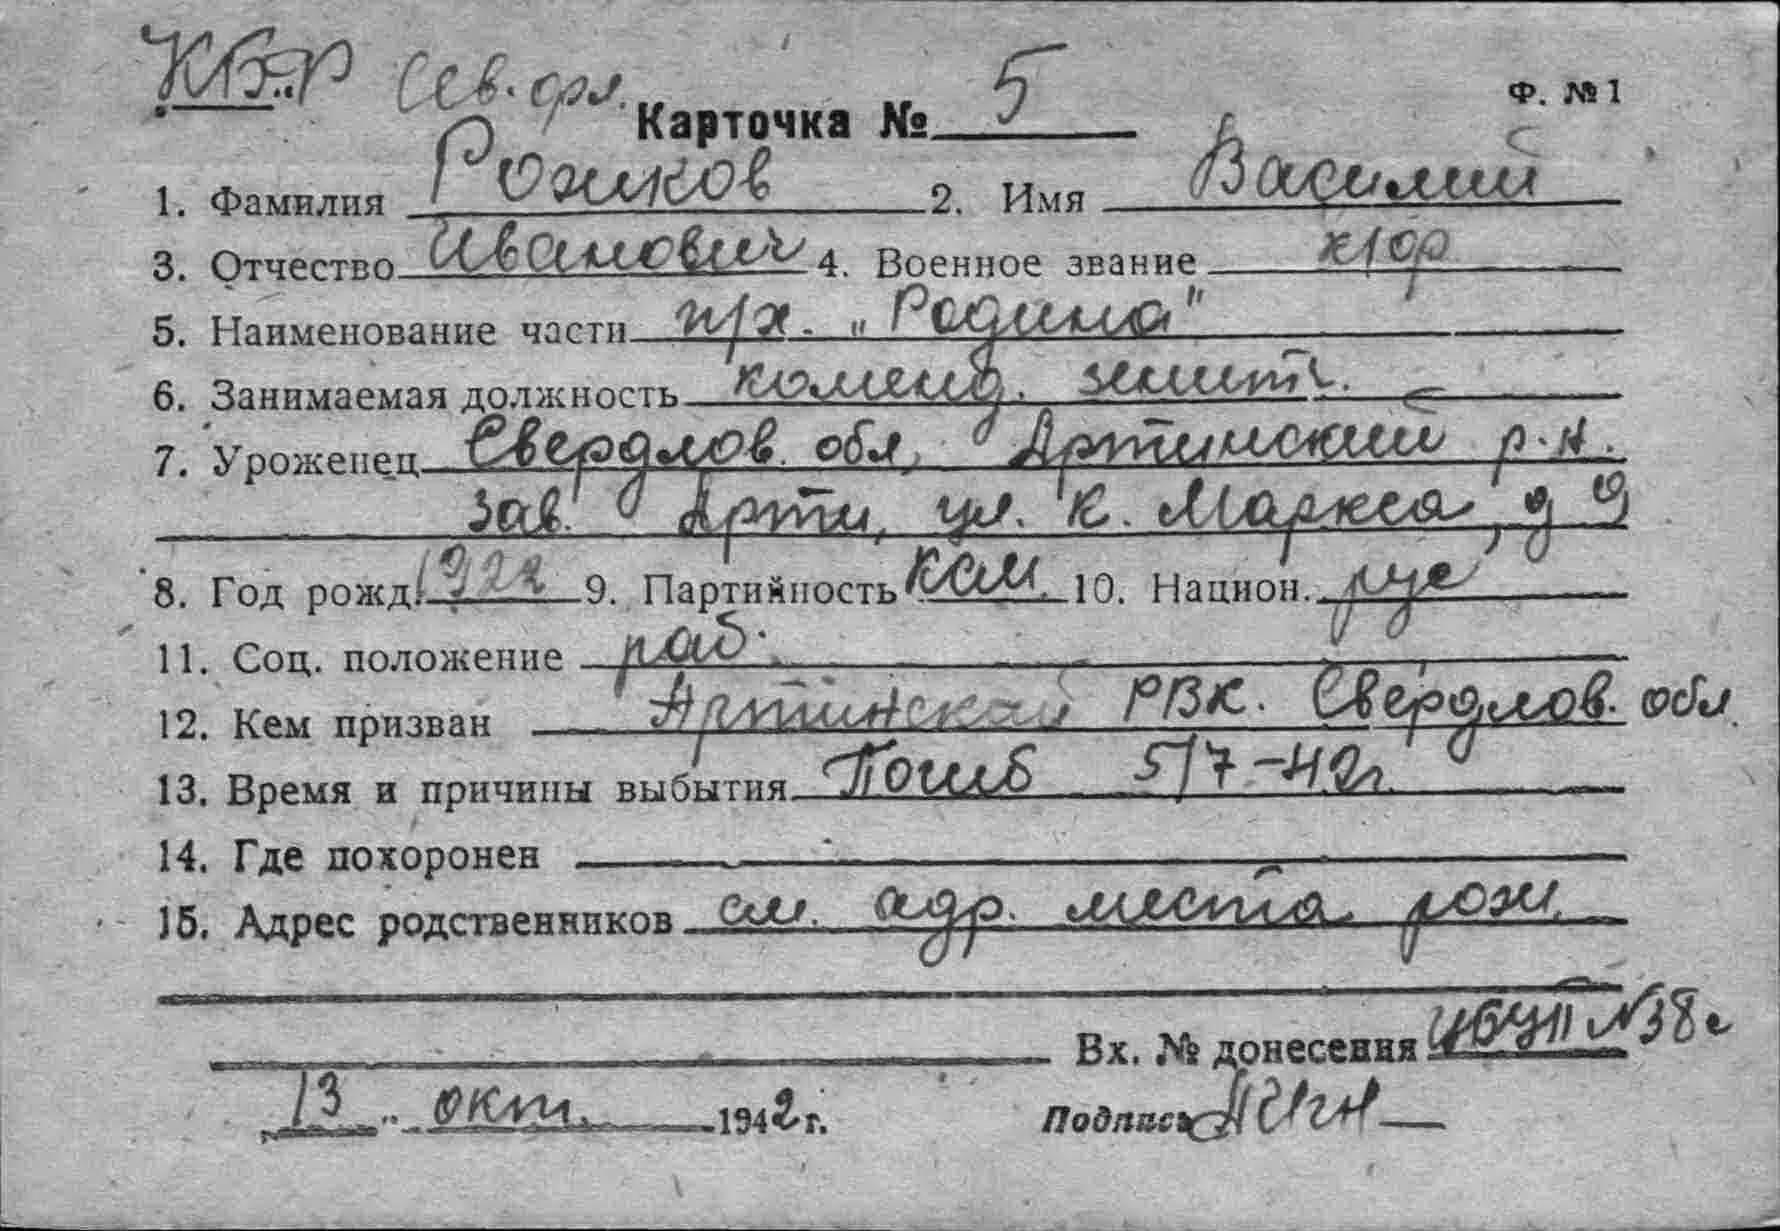 КБФ Сев. фл.
Ф. №1
Карточка № 5
1. Фамилия Рожков 2. Имя Василий
3. Отчество Иванович 4. Военное звание к/оф
5. Наименование части п/х. „Родина"
6. Занимаемая должность коменд. зенитч.
7. Уроженец Свердлов. обл, Артинский р-н.
зав. Арти, ул. К. Маркса, д 9
8. Год рожд. 1922 9. Партийность кан. 10. Национ. рус
11. Соц. положение раб.
12. Кем призван Артинский РВК. Свердлов. обл.
13. Время и причины выбытия Погиб 5/7-42г.
14. Где похоронен
15. Адрес родственников см. адр. места рож.
Вх. № донесения №38с
13 окт. 1942 г. Подпись